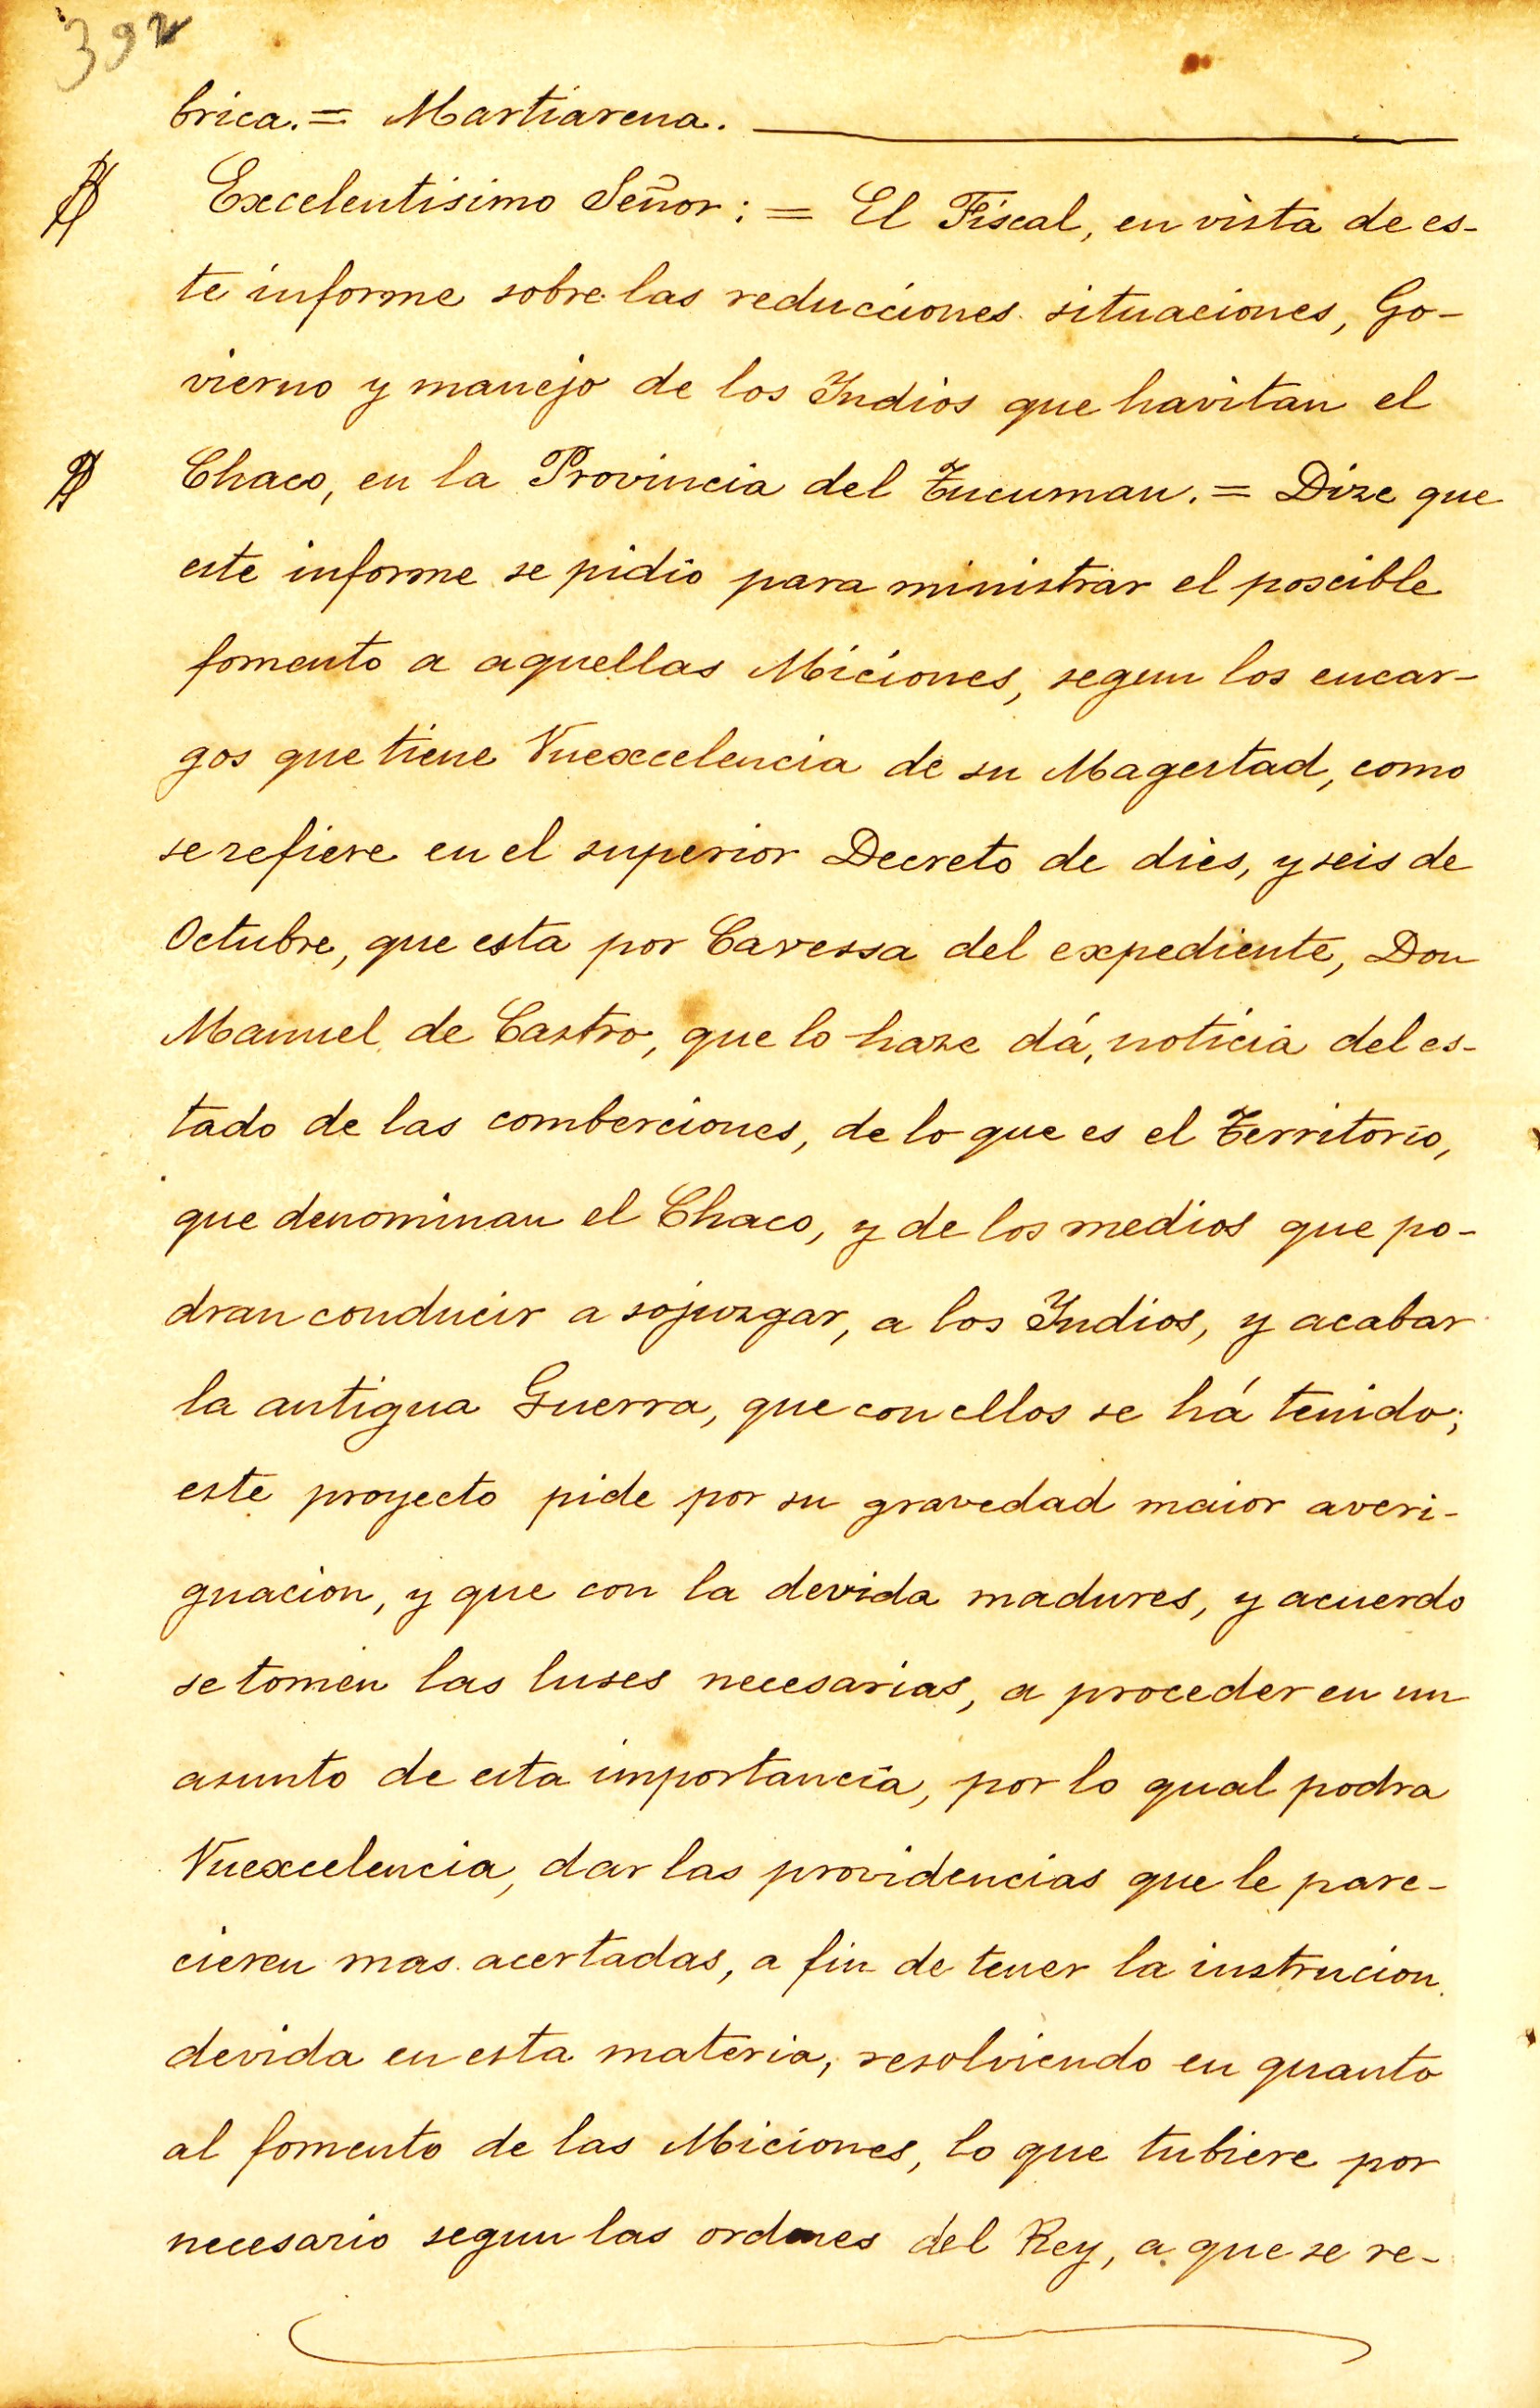 392
brica.= Martiarena.
Excelentisimo Señor: = El Fiscal, en vista de es-
te informe sobre las reducciones situaciones, Go-
vierno y manejo de los Indios que havitan el
Chaco, en la Provincia del Tucuman. = Dize que
este informe se pidio para ministrar el poscible
fomento a aquellas Miciones, segun los encar-
gos que tiene Vuexcelencia de su Magestad, como
se refiere en el superior Decreto de dies, y seis de
Octubre, que esta por Cavessa del expediente, Don
Manuel de Castro, que lo haze dá, noticia del es-
tado de las comberciones, de lo que es el Territorio,
que denominan el Chaco, y de los medios que po-
dran conducir a sojuzgar, a los Indios, y acabar
la antigua Guerra, que con ellos se há tenido;
este proyecto pide por su gravedad maior averi-
guacion, y que con la devida madures, y acuerdo
se tomen las luses necesarias, a proceder en un
asunto de esta importancia, por lo qual podra
Vuexcelencia, dar las providencias que le pare-
cieren mas acertadas, a fin de tener la instrucion
devida en esta materia, resolviendo en quanto
al fomento de las Miciones, lo que tubiere por
necesario segun las ordenes del Rey, a que se re-